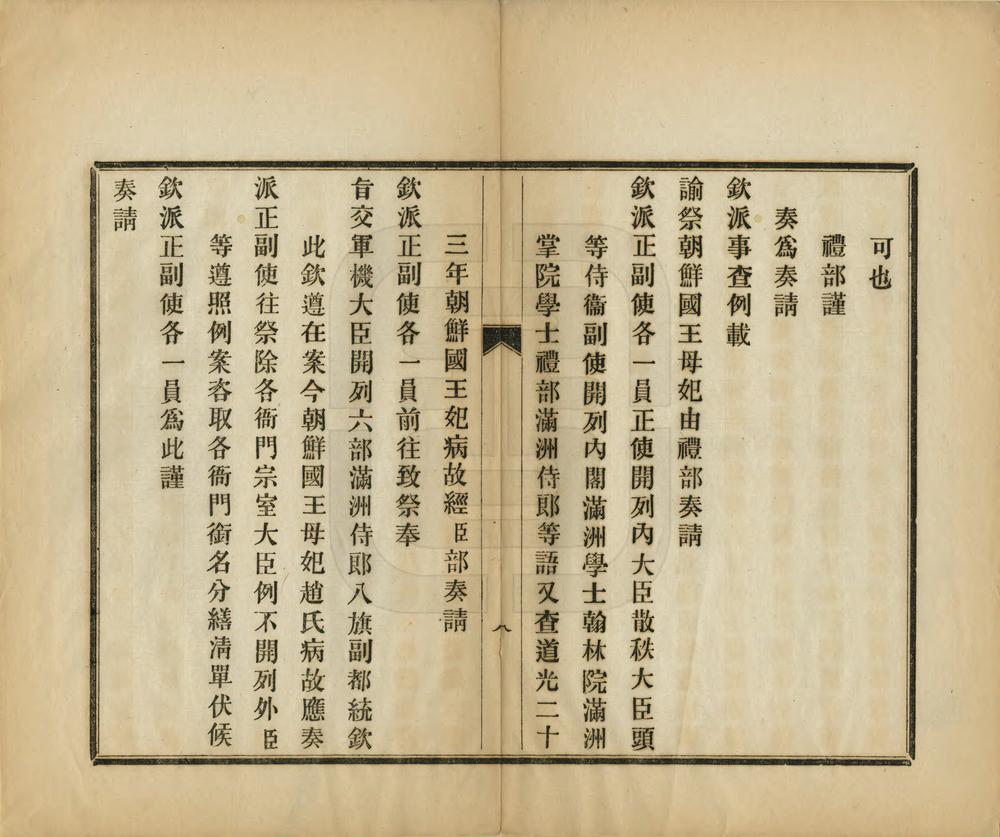 可也
禮部謹
奏爲奏請
欽派事查例載
諭祭朝鮮國王母妃由禮部奏請
欽派正副使各一員正使開列內大臣散秩大臣頭
等侍衞副使開列內閣滿洲學士翰林院滿洲
掌院學士禮部滿洲侍郎等語又查道光二十
八
三年朝鮮國王妃病故經臣部奏請
欽派正副使各一員前往致祭奉
旨交軍機大臣開列六部滿洲侍郎八旗副都統欽
此欽遵在案今朝鮮國王母妃趙氏病故應奏
派正副使往祭除各衙門宗室大臣例不開列外臣
等遵照例案咨取各衙門銜名分繕淸單伏候
欽派正副使各一員爲此謹
奏請